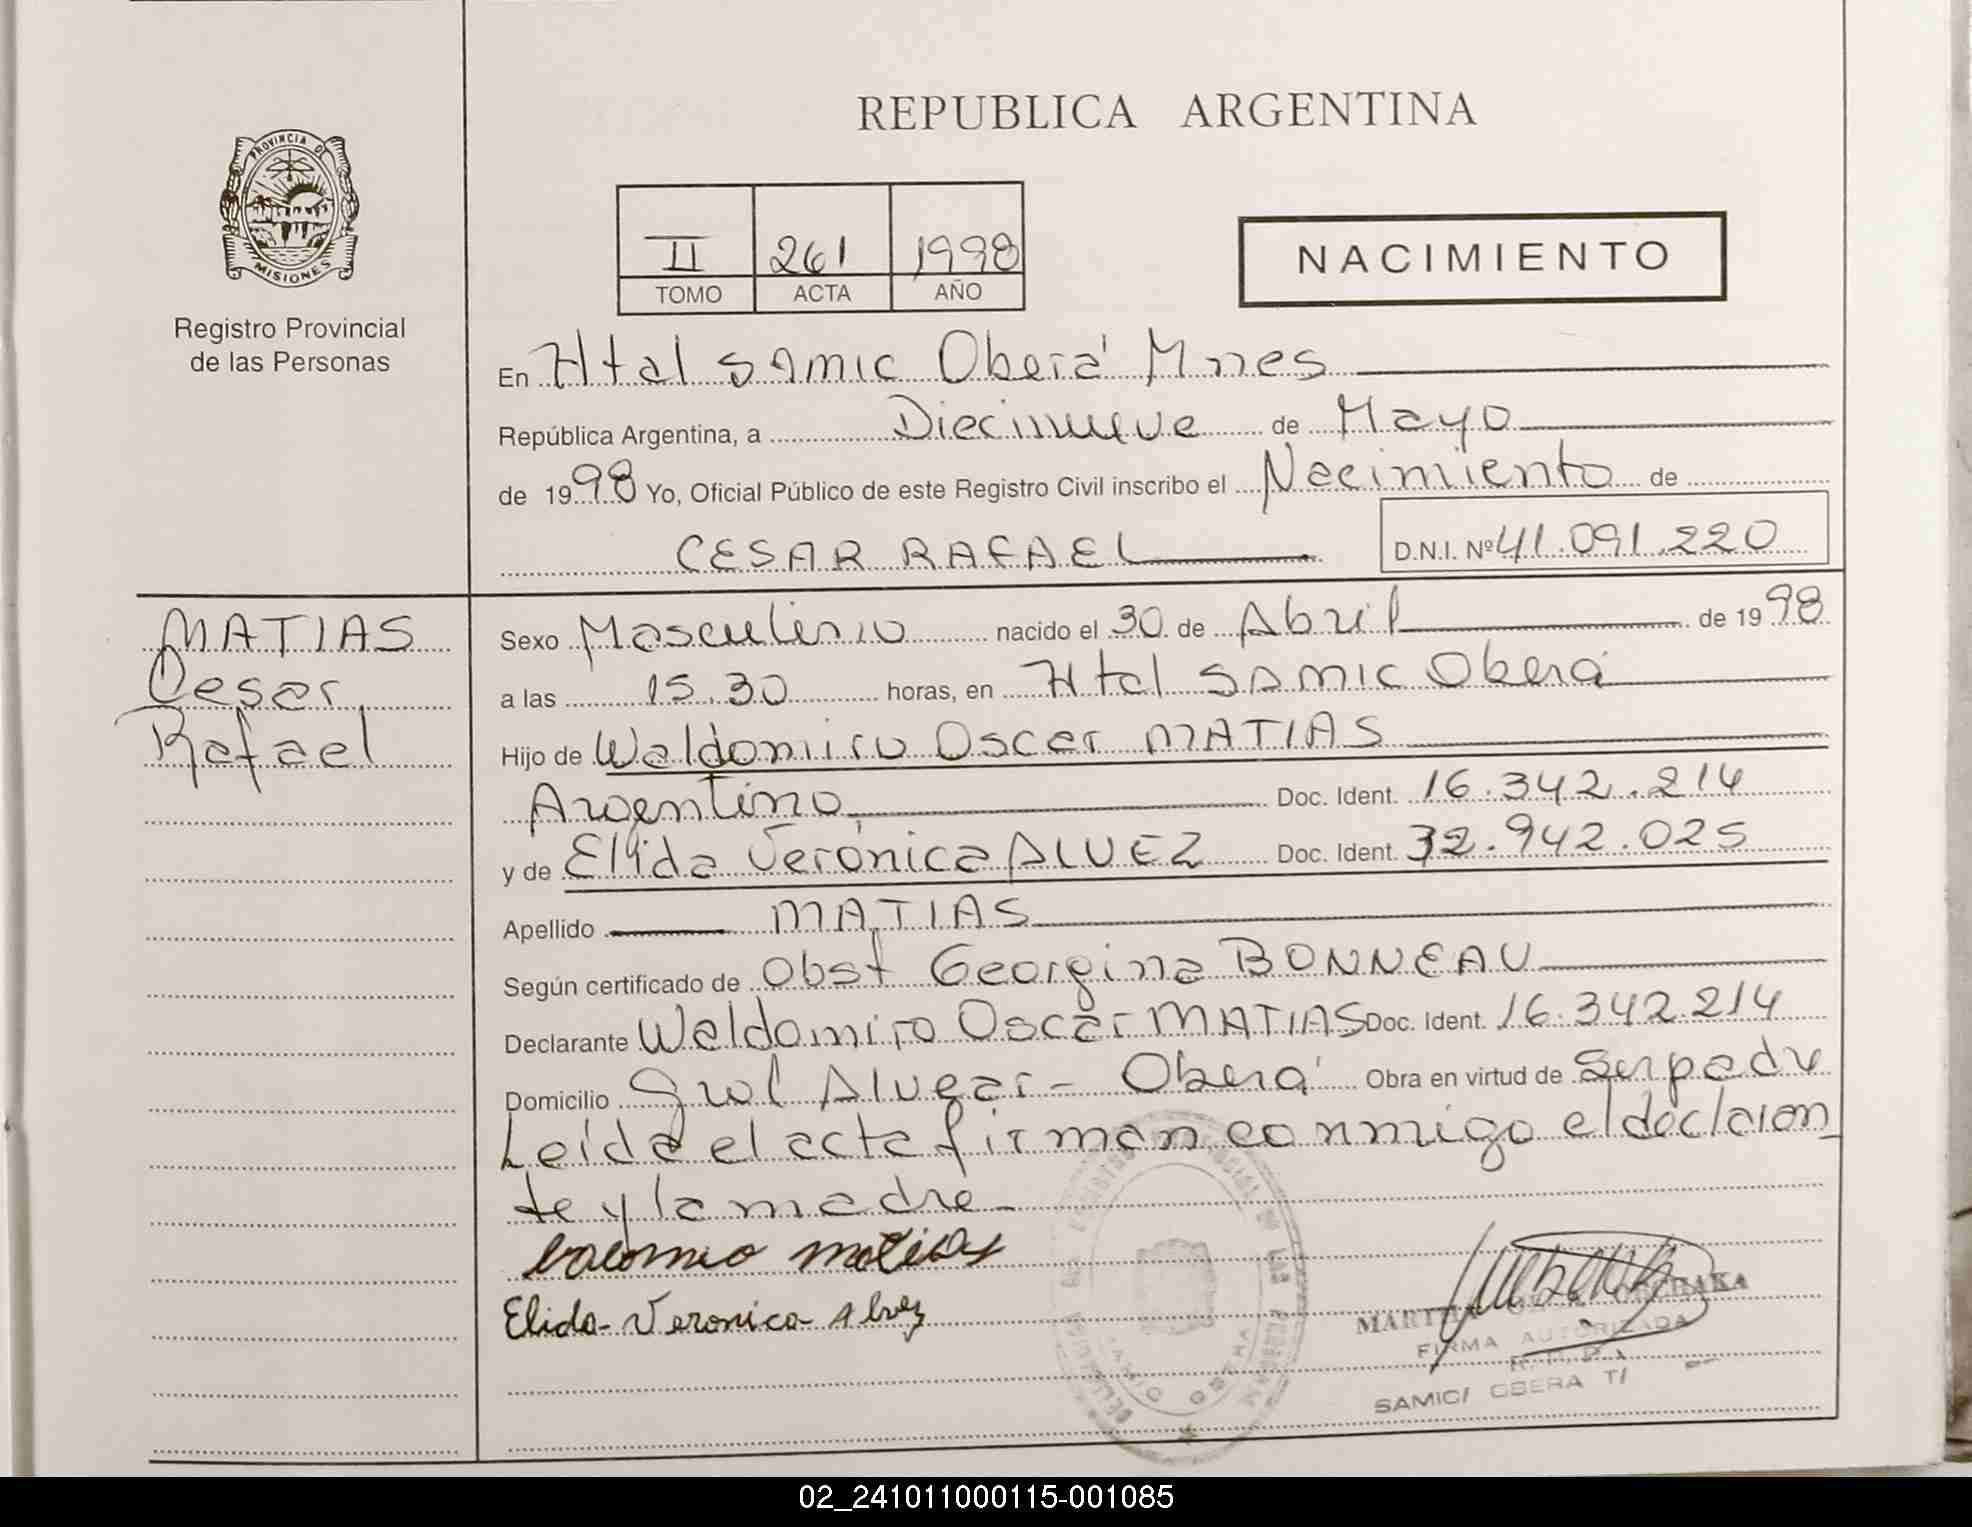 REPUBLICA ARGENTINA
PROVINCIA D
MISIONES
Registro Provincial
de las Personas
II 261 1998
TOMO ACTA AÑO
NACIMIENTO
En Htal SAMIC Oberá Mnes
República Argentina, a Diecinueve de Mayo
de 1998 Yo, Oficial Público de este Registro Civil inscribo el Nacimiento de
CESAR RAFAEL
D.N.I. Nº 41.091.220
MATIAS
Cesar
Rafael
Sexo Masculino nacido el 30 de Abril de 1998
a las 15.30 horas, en Htal SAMIC Oberá
Hijo de Waldomiro Oscar MATIAS
Argentino, Doc. Ident. 16.342.214
y de Elida Verónica ALVEZ Doc. Ident. 32.942.025
Apellido MATIAS
Según certificado de Obst Georgina BONNEAU
Declarante Waldomiro Oscar MATIAS Doc. Ident. 16.342.214
Domicilio Gral Alvear - Oberá Obra en virtud de Ser padre
Leída el acta firman conmigo el declaran_
te y la madre_
matias
Elida Veronica Alvez
FIRMA AUTORIZADA
R.P.P.
SAMIC/ OBERA T/
02_241011000115-001085